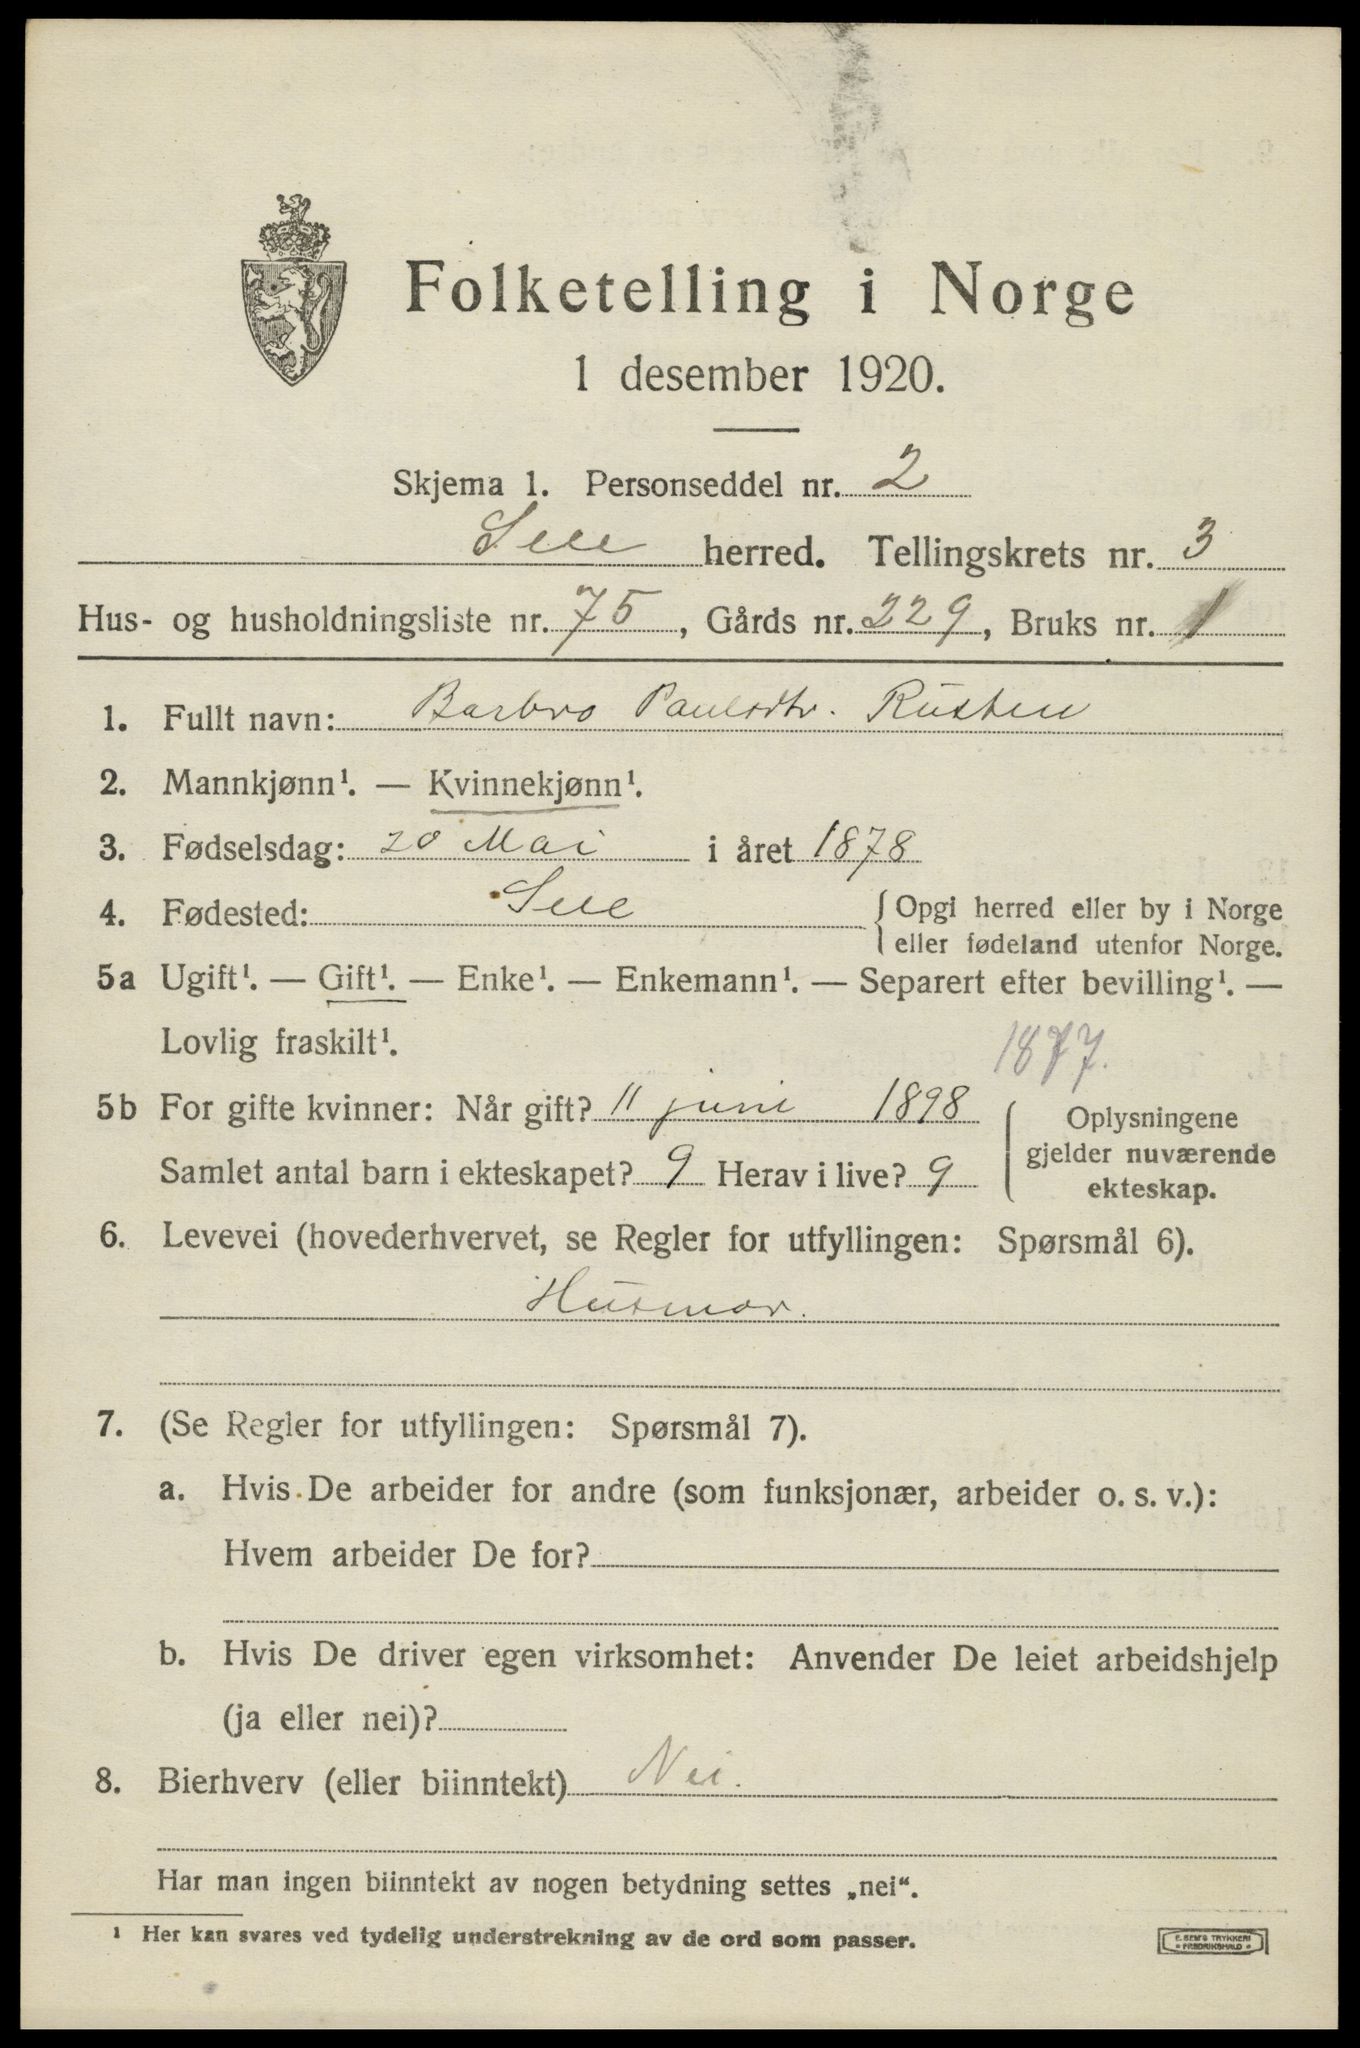 Folketelling i Norge
1 desember 1920.
Skjema 1. Personseddel nr. 2
Sell herred. Tellingskrets nr. 3
Hus- og husholdningsliste nr. 75, Gårds nr. 229, Bruks nr. 1
1. Fullt navn: Barbro Paulsdtr. Rusten
2. Mannkjønn¹. — Kvinnekjønn¹.
3. Fødselsdag: 20 Mai i året 1878
4. Fødested: Sell { Opgi herred eller by i Norge
eller fødeland utenfor Norge.
5a Ugift¹. — Gift¹. — Enke¹. — Enkemann¹. — Separert efter bevilling¹. —
Lovlig fraskilt¹.
1877.
5b For gifte kvinner: Når gift? 11 juni 1898
Samlet antal barn i ekteskapet? 9 Herav i live? 9
Oplysningene
gjelder nuværende
ekteskap.
6. Levevei (hovederhvervet, se Regler for utfyllingen: Spørsmål 6).
Husmor.
7. (Se Regler for utfyllingen: Spørsmål 7).
a. Hvis De arbeider for andre (som funksjonær, arbeider o. s. v.):
Hvem arbeider De for?
b. Hvis De driver egen virksomhet: Anvender De leiet arbeidshjelp
(ja eller nei)?
8. Bierhverv (eller biinntekt) Nei.
Har man ingen biinntekt av nogen betydning settes „nei".
¹ Her kan svares ved tydelig understrekning av de ord som passer.
E. SEM'S TRYKKERI
* FREDRIKSHALD *